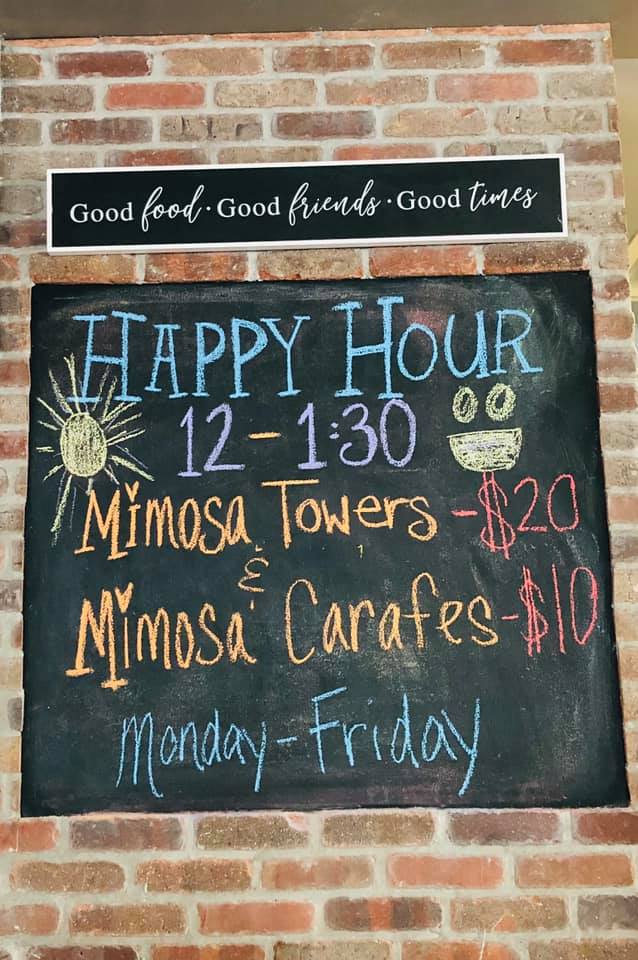 Good food · Good friends · Good times
HAPPY HOUR
12 - 1:30
Mimosa Towers - $20
&
Mimosa Carafes - $10
Monday - Friday